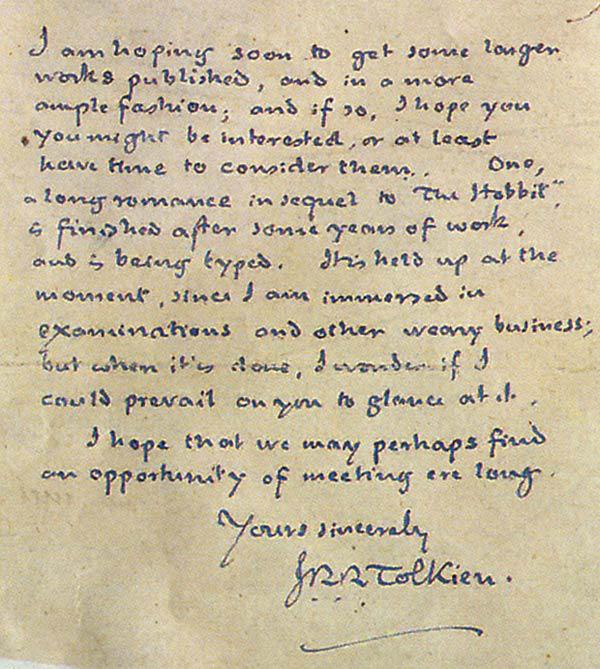 I am hoping soon to get some larger
works published, and in a more
ample fashion; and if so, I hope you
you might be interested, or at least
have time to consider them. One,
a long romance in sequel to "The Hobbit",
is finished after some years of work,
and is being typed. It is held up at the
moment, since I am immersed in
examinations and other weary business;
but when it is done, I wonder if I
could prevail on you to glance at it.
I hope that we may perhaps find
an opportunity of meeting ere long.
Yours sincerely
JRRTolkien.